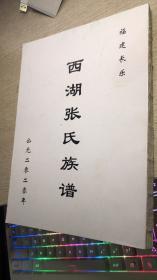 福建长乐
西湖张氏族谱
公元二零二零年